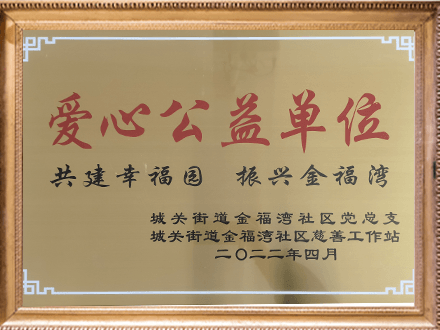 爱心公益单位
共建幸福园 振兴金福湾
城关街道金福湾社区党总支
城关街道金福湾社区慈善工作站
二〇二二年四月